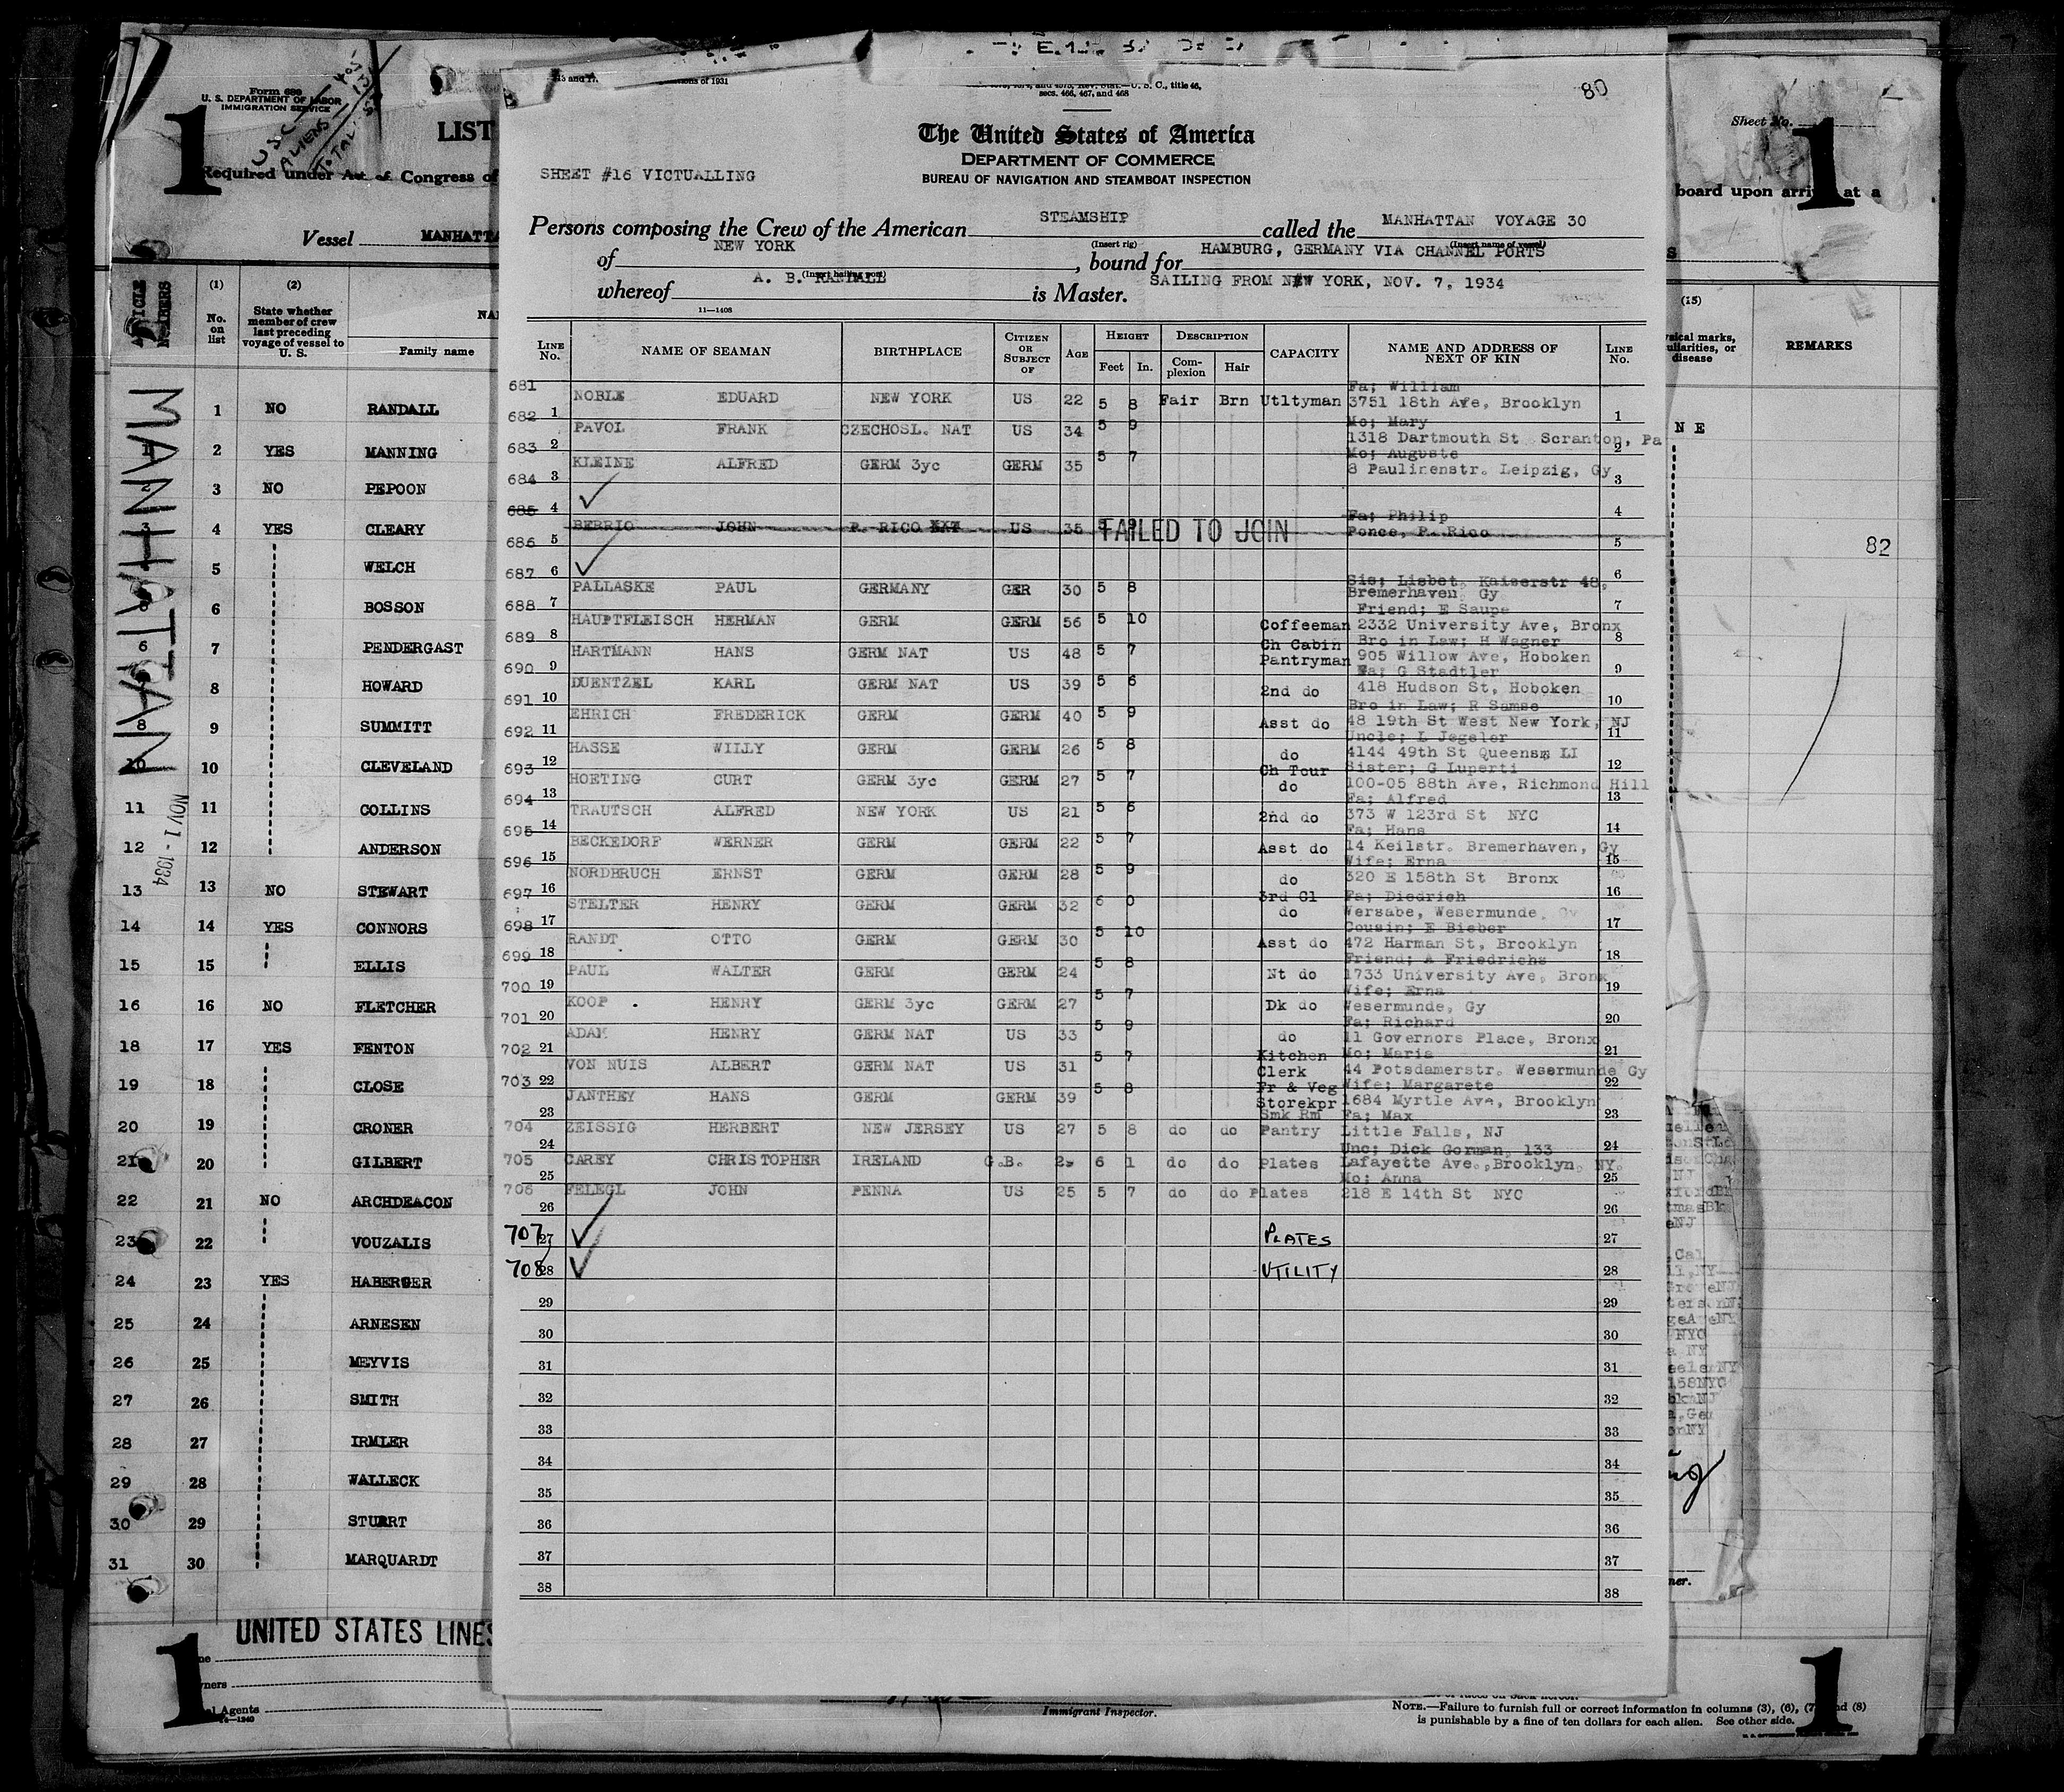 Form 689
U. S. DEPARTMENT OF LABOR
IMMIGRATION SERVICE
USC
ALIENS
TOTAL
1
LIST
Required under Act of Congress of
Vessel MANHATTA
ARTICLE NUMBERS
(1) No. on list
(2) State whether member of crew last preceding voyage of vessel to U. S.
Family name
MANHATTAN
NOV 1 - 1934
1 NO RANDALL
1 2 YES MANNING
2 3 NO PEPOON
3 4 YES CLEARY
5 WELCH
6 BOSSON
6 7 PENDERGAST
8 HOWARD
8 9 SUMMITT
10 10 CLEVELAND
11 11 COLLINS
12 12 ANDERSON
13 13 NO STEWART
14 14 YES CONNORS
15 15 ELLIS
16 16 NO FLETCHER
18 17 YES FENTON
19 18 CLOSE
20 19 CRONER
21 20 GILBERT
22 21 NO ARCHDEACON
23 22 VOUZALIS
24 23 YES HABERGER
25 24 ARNESEN
26 25 MEYVIS
27 26 SMITH
28 27 IRMLER
29 28 WALLECK
30 29 STUART
31 30 MARQUARDT
UNITED STATES LINES
1
Agents
80
secs. 466, 467, and 468
The United States of America
DEPARTMENT OF COMMERCE
BUREAU OF NAVIGATION AND STEAMBOAT INSPECTION
SHEET #16 VICTUALLING
Persons composing the Crew of the American STEAMSHIP called the MANHATTAN VOYAGE 30
(Insert rig) (Insert name of vessel)
of NEW YORK, bound for HAMBURG, GERMANY VIA CHANNEL PORTS
(Insert hailing port)
whereof A. B. RANDALL is Master. SAILING FROM NEW YORK, NOV. 7, 1934
11—1408
LINE No. NAME OF SEAMAN BIRTHPLACE CITIZEN OR SUBJECT OF AGE HEIGHT Feet In. DESCRIPTION Complexion Hair CAPACITY NAME AND ADDRESS OF NEXT OF KIN LINE No.
681 NOBLE EDUARD NEW YORK US 22 5 8 Fair Brn Utltyman Fa; William 3751 18th Ave, Brooklyn 1
682 1 PAVOL FRANK CZECHOSL. NAT US 34 5 9 Mo; Mary 1318 Dartmouth St Scranton, Pa 2
683 2 KLEINE ALFRED GERM 3yc GERM 35 5 7 Mo; Auguste 8 Paulinenstr. Leipzig, Gy 3
684 3
685 4 BERRIO JOHN P. RICO XXT US 35 5 FAILED TO JOIN Fa; Philip Ponce, P. Rico 4
686 5 5
687 6 PALLASKE PAUL GERMANY GER 30 5 8 Sis; Lisbet, Kaiserstr 48, Bremerhaven, Gy 6
688 7 HAUPTFLEISCH HERMAN GERM GERM 56 5 10 Coffeeman Friend; E Saupe 2332 University Ave, Bronx 7
689 8 HARTMANN HANS GERM NAT US 48 5 7 Ch Cabin Pantryman Bro in Law; H Wagner 905 Willow Ave, Hoboken 8
690 9 DUENTZEL KARL GERM NAT US 39 5 6 2nd do Fa; G Stadtler 418 Hudson St, Hoboken 9
691 10 EHRICH FREDERICK GERM GERM 40 5 9 Asst do Bro in Law; R Samse 48 19th St West New York, NJ 10
692 11 HASSE WILLY GERM GERM 26 5 8 do Uncle; L Jegeler 4144 49th St Queens LI 11
693 12 HOETING CURT GERM 3yc GERM 27 5 7 Ch Tour do Sister; G Luperti 100-05 88th Ave, Richmond Hill 12
694 13 TRAUTSCH ALFRED NEW YORK US 21 5 6 2nd do Fa; Alfred 373 W 123rd St NYC 13
695 14 BECKEDORF WERNER GERM GERM 22 5 7 Asst do Fa; Hans 14 Keilstr. Bremerhaven, Gy 14
696 15 NORDBRUCH ERNST GERM GERM 28 5 9 do Wife; Erna 320 E 158th St Bronx 15
697 16 STELTER HENRY GERM GERM 32 6 0 3rd Cl do Fa; Diedrich Wersabe, Wesermunde, Gy 16
698 17 RANDT OTTO GERM GERM 30 5 10 Asst do Cousin; E Bieber 472 Harman St, Brooklyn 17
699 18 PAUL WALTER GERM GERM 24 5 8 Nt do Friend; A Friedrichs 1733 University Ave, Bronx 18
700 19 KOOP HENRY GERM 3yc GERM 27 5 7 Dk do Wife; Erna Wesermunde, Gy 19
701 20 ADAM HENRY GERM NAT US 33 5 9 do Fa; Richard 11 Governors Place, Bronx 20
702 21 VON NUIS ALBERT GERM NAT US 31 5 7 Kitchen Clerk Mo; Maria 44 Potsdamerstr. Wesermunde Gy 21
703 22 JANTHEY HANS GERM GERM 39 5 8 Fr & Veg Storekpr Wife; Margarete 1684 Myrtle Ave, Brooklyn 22
23 704 ZEISSIG HERBERT NEW JERSEY US 27 5 8 do do Smk Rm Pantry Fa; Max Little Falls, NJ 23
24 705 CAREY CHRISTOPHER IRELAND G.B. 6 1 do do Plates Unc; Dick Gorman, 133 Lafayette Ave., Brooklyn, NY. 24
25 706 FELEGL JOHN PENNA US 25 5 7 do do Plates Mo; Anna 218 E 14th St NYC 25
26 26
707 27 PLATES 27
708 28 UTILITY 28
29 29
30 30
31 31
32 32
33 33
34 34
35 35
36 36
37 37
38 38
Sheet No.
1
board upon arrival at a
(15)
physical marks, peculiarities, or disease
REMARKS
N E
82
Immigrant Inspector.
NOTE.—Failure to furnish full or correct information in columns (3), (6), (7) and (8)
is punishable by a fine of ten dollars for each alien. See other side.
1